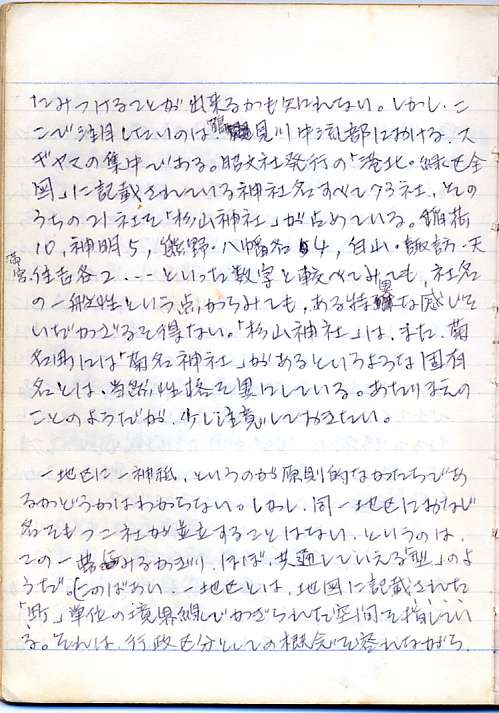 たみつけることが出来るかも知れない。しかし、こ
こで注目したいのは、鶴見川中流部における、ス
ギヤマの集中である。昭文社発行の「港北・緑区全
図」に記載されている神社名すべて73社、そのう
ちの21社を「杉山神社」が占めている。稲荷
10、神明5、熊野・八幡各4、白山・諏訪・天
満宮
住吉各2、‥‥といった数字と較べてみても、社名
の一般性という点からみても、ある特異な感じを
いだかざるを得ない。「杉山神社」は、また、菊
名町には「菊名神社」があるというような固有
名とは、当然、性格を異にしている。あたりまえの
ことのようだが、少し注意しておきたい。
一地区に一神祇、というのが原則的なかたちであ
るかどうかはわからない。しかし、同一地区におなじ
名をもつ二社が並立することはない、というのは、
この一帯みるかぎり、ほぼ、共通していえる「型」のよ
うだ。このばあい、一地区とは、地図に記載された
「町」単位の境界線でかぎられた空間を指してい
る。それは、行政区分としての概念を容れながら、